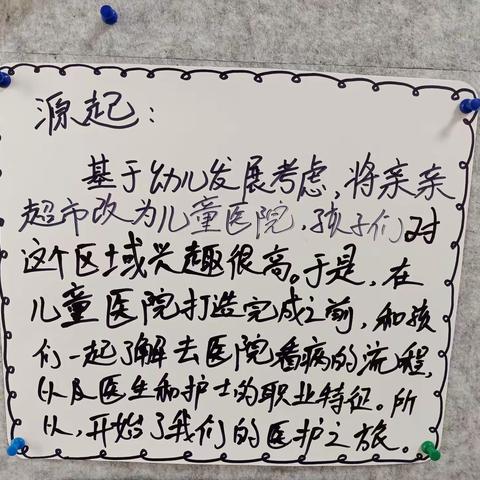 源起：
基于幼儿发展考虑,将亲亲
超市改为儿童医院,孩子们对
这个区域兴趣很高。于是,在
儿童医院打造完成之前,和孩
们一起了解去医院看病的流程,
以及医生和护士的职业特征。所
以,开始了我们的医护之旅。